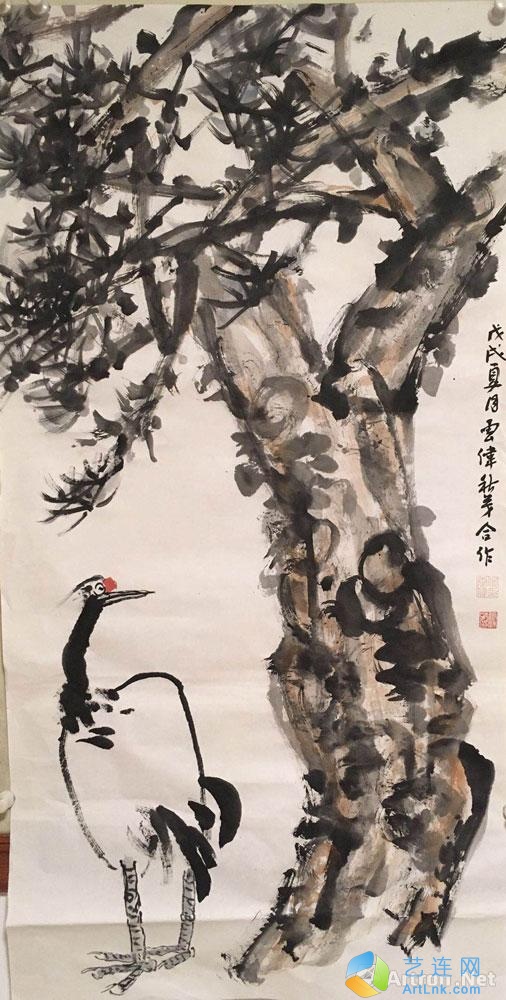 戊戌夏月雲偉秋合作
Artron.Net
艺连网
ArtLnk.com